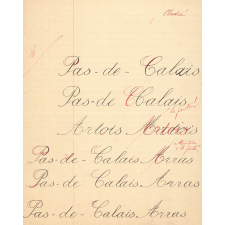 André
Pas-de-Calais
Pas-de Calais
Artois Artois
Pas-de-Calais Arras
Pas-de-Calais Arras
Pas-de-Calais Arras